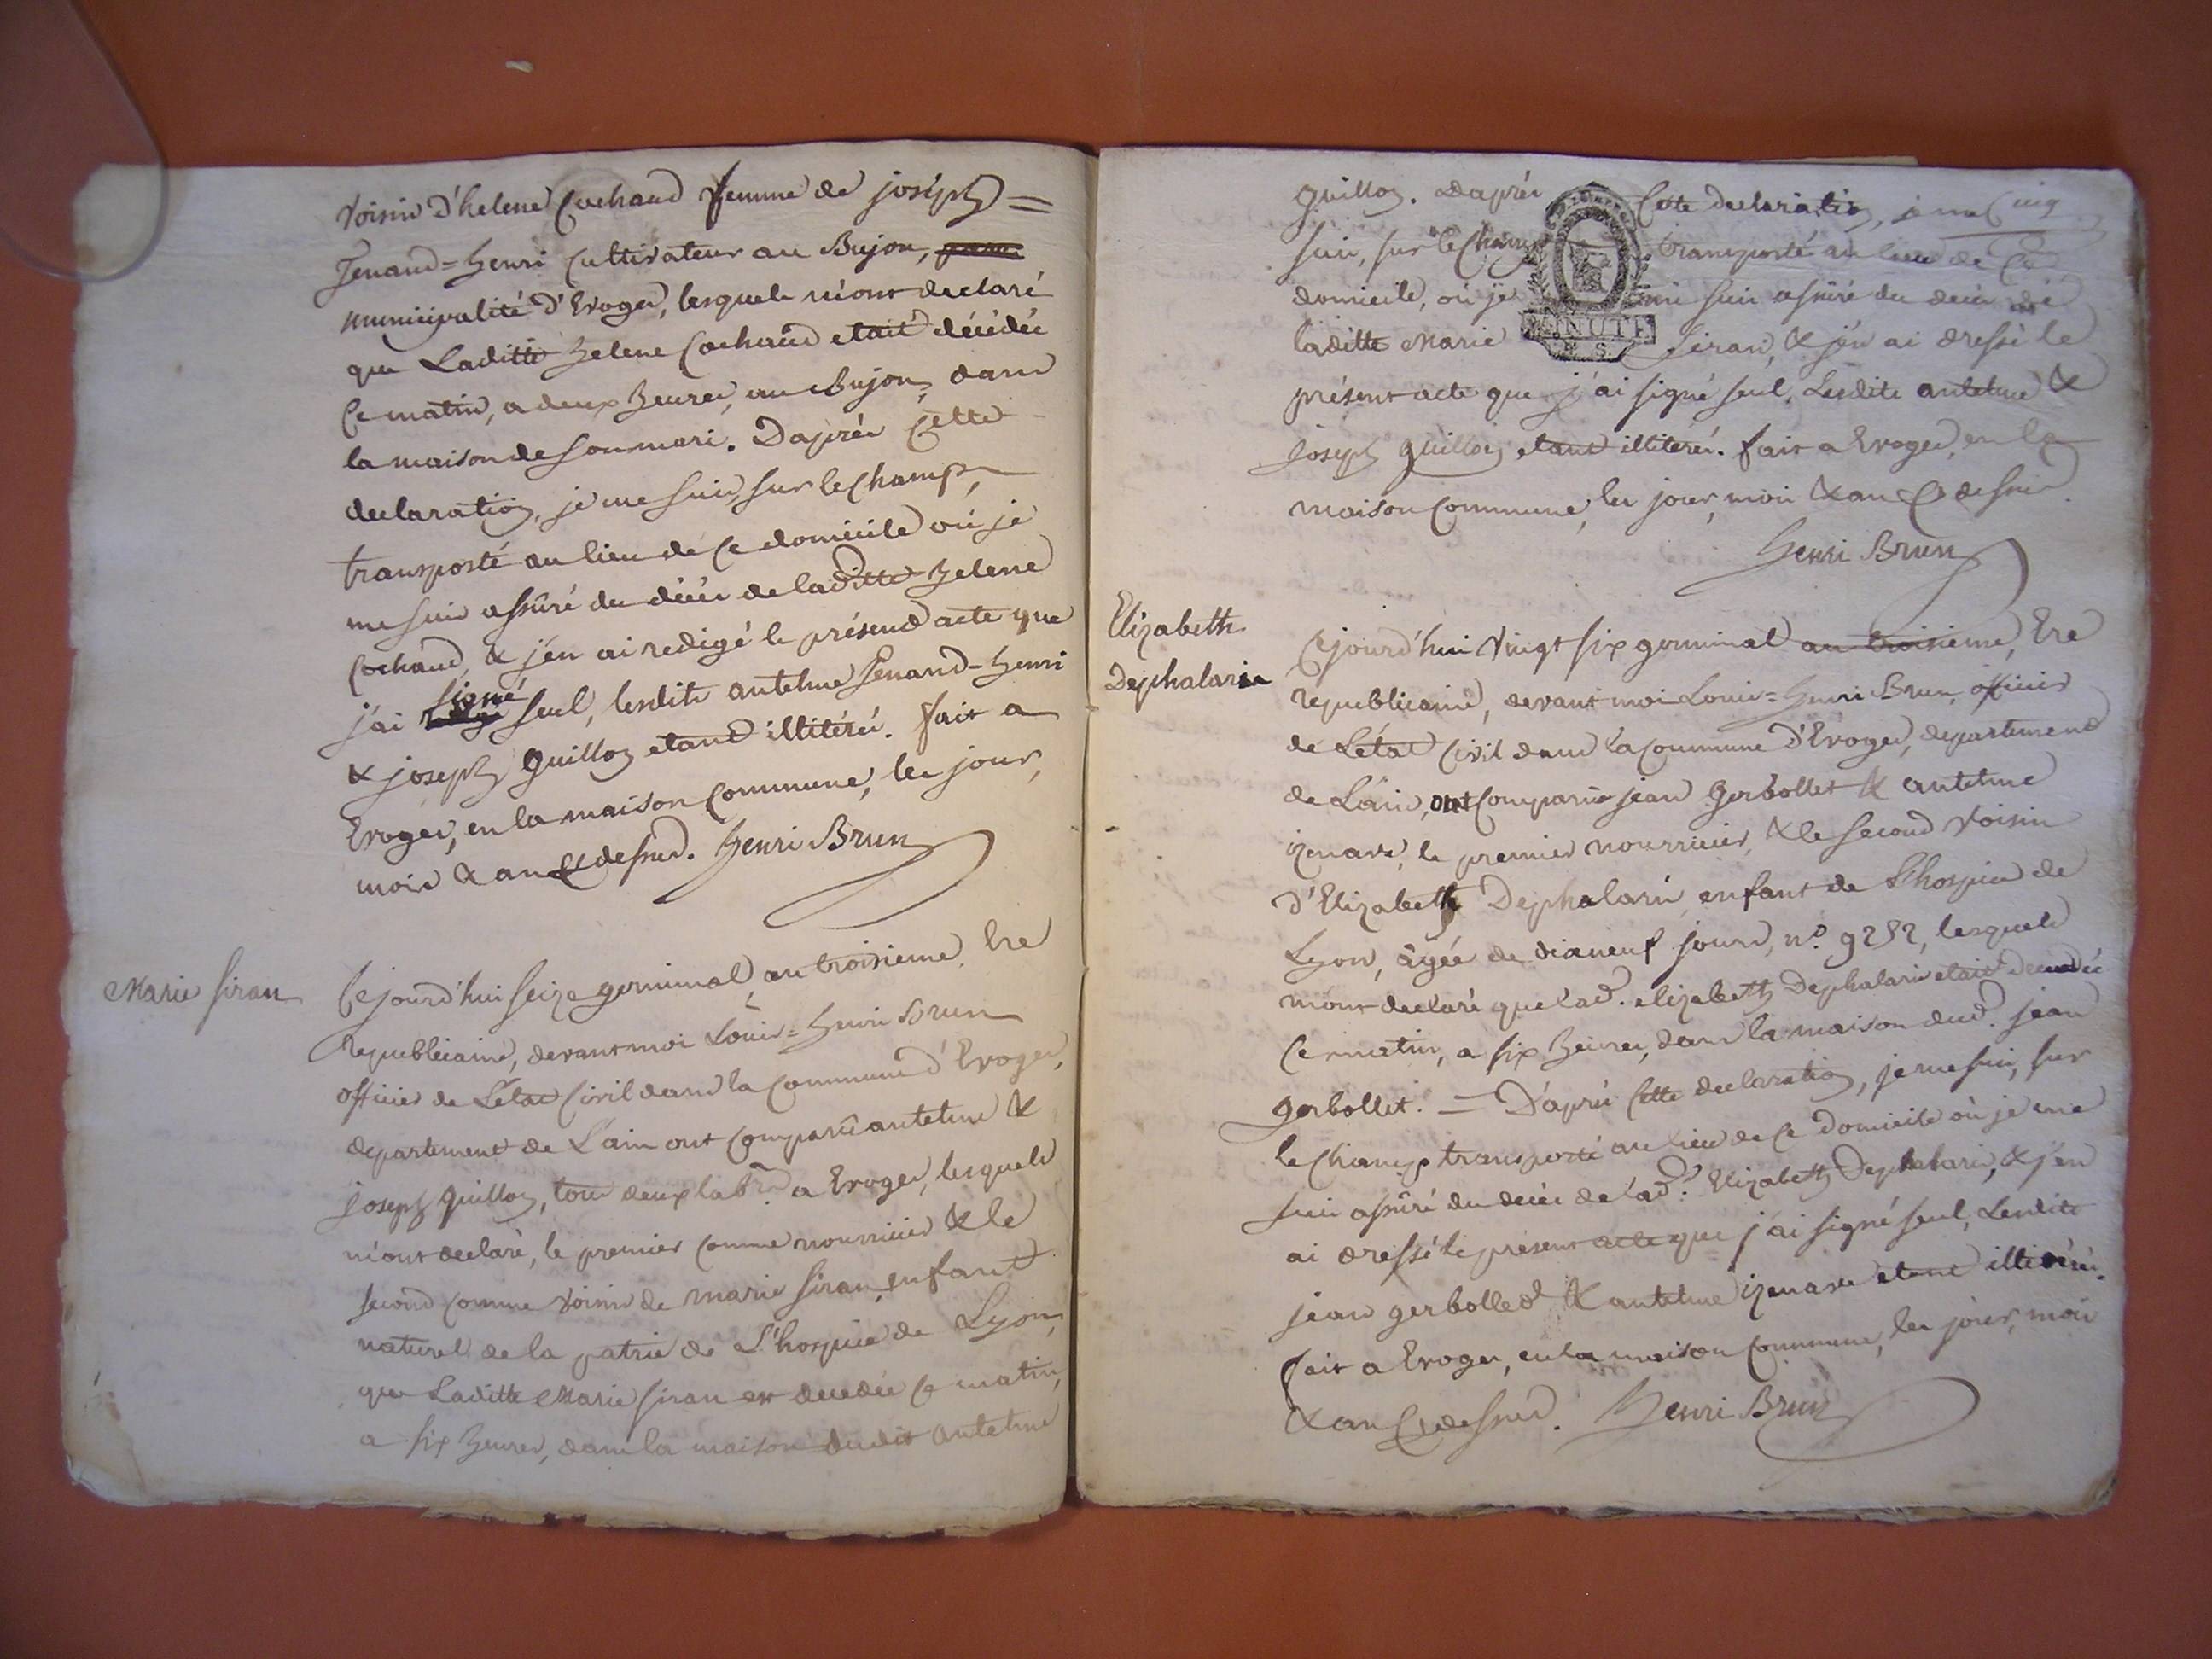 voisin d'helene Cochaud femme de joseph =
Jenand=henri Cultivateur au Bujon,
municipalité d'Evoges, lesquels m'ont declaré
que Laditte helene Cochaud etait décédée
Ce matin, a deux heures, au Bujon, dans
la maison de son mari. Daprès Cette
declaration, je me suis, sur le champ,
transporté au lieu de ce domicile où je
me suis assûré du décès de laditte helene
Cochaud, & j'en ai redigé le présend acte que
j'ai signé seul, lesdits antelme Jenand-henri
& joseph Guillon etand illitérés. fait a
Evoges, en la maison Commune, les jour,
mois & an Cy dessus. Henri Brun
Marie siran
Cejourd'hui seize germinal, an troisieme, Ere
Republicaine, devant moi Louis=henri Brun
officier de Létat Civil dans la Commune d'Evoges,
departement de L'ain ont Comparû antelme &
joseph Guillon, tous deux labrs a Evoges, lesquels
m'ont declaré, le premier Comme nourricier & le
second Comme voisin de marie siran, enfant
naturel de la patrie de L'hospice de Lyon,
que Laditte Marie siran est decedée ce matin,
a six heures, dans la maison dudit antelme
guillon. Daprès Cette declaration, je me
suis, sur le Champ transporté au lieu de Ce
domicile, où je me suis assûré du decès de
laditte Marie Siran, & j'en ai dressé le
MINUTE
présent acte que j'ai signé seul, Lesdits antelme &
joseph guillon etant illitérés. fait a Evoges, en la
maison Commune, les jour, mois & an Cy dessus.
Henri Brun
Elizabeth
Dephalarie
Cejourd'hui vingt six germinal an troisieme, Ere
republicaine, devant moi Louis=henri Brun, officier
de Létat Civil dans la Commune d'Evoges, departement
de L'ain, ont Comparûs jean Gerbollet & antelme
izenave, le premier nourricier, & le second voisin
d'Elizabeth Dephalarie, enfant de L'hospice de
Lyon, âgée de dixneuf jours, no. 9252, lesquels
m'ont declaré que lad. elizabeth Dephalarie etait decedée
Ce matin, a six heures, dans la maison dud. jean
gerbollet. = D'après Cette declaration, je me suis, sur
le Champ transporté au lieu de Ce Domicile où je me
suis assûré du decès de lad. Elizabeth Dephalarie, & j'en
ai dressé le présent acte que j'ai signé seul, Lesdits
jean gerbolled & antelme izenave etant illitérés.
fait a Evoges, en la maison Commune, les jour, mois
& an Cy dessus. Henri Brun